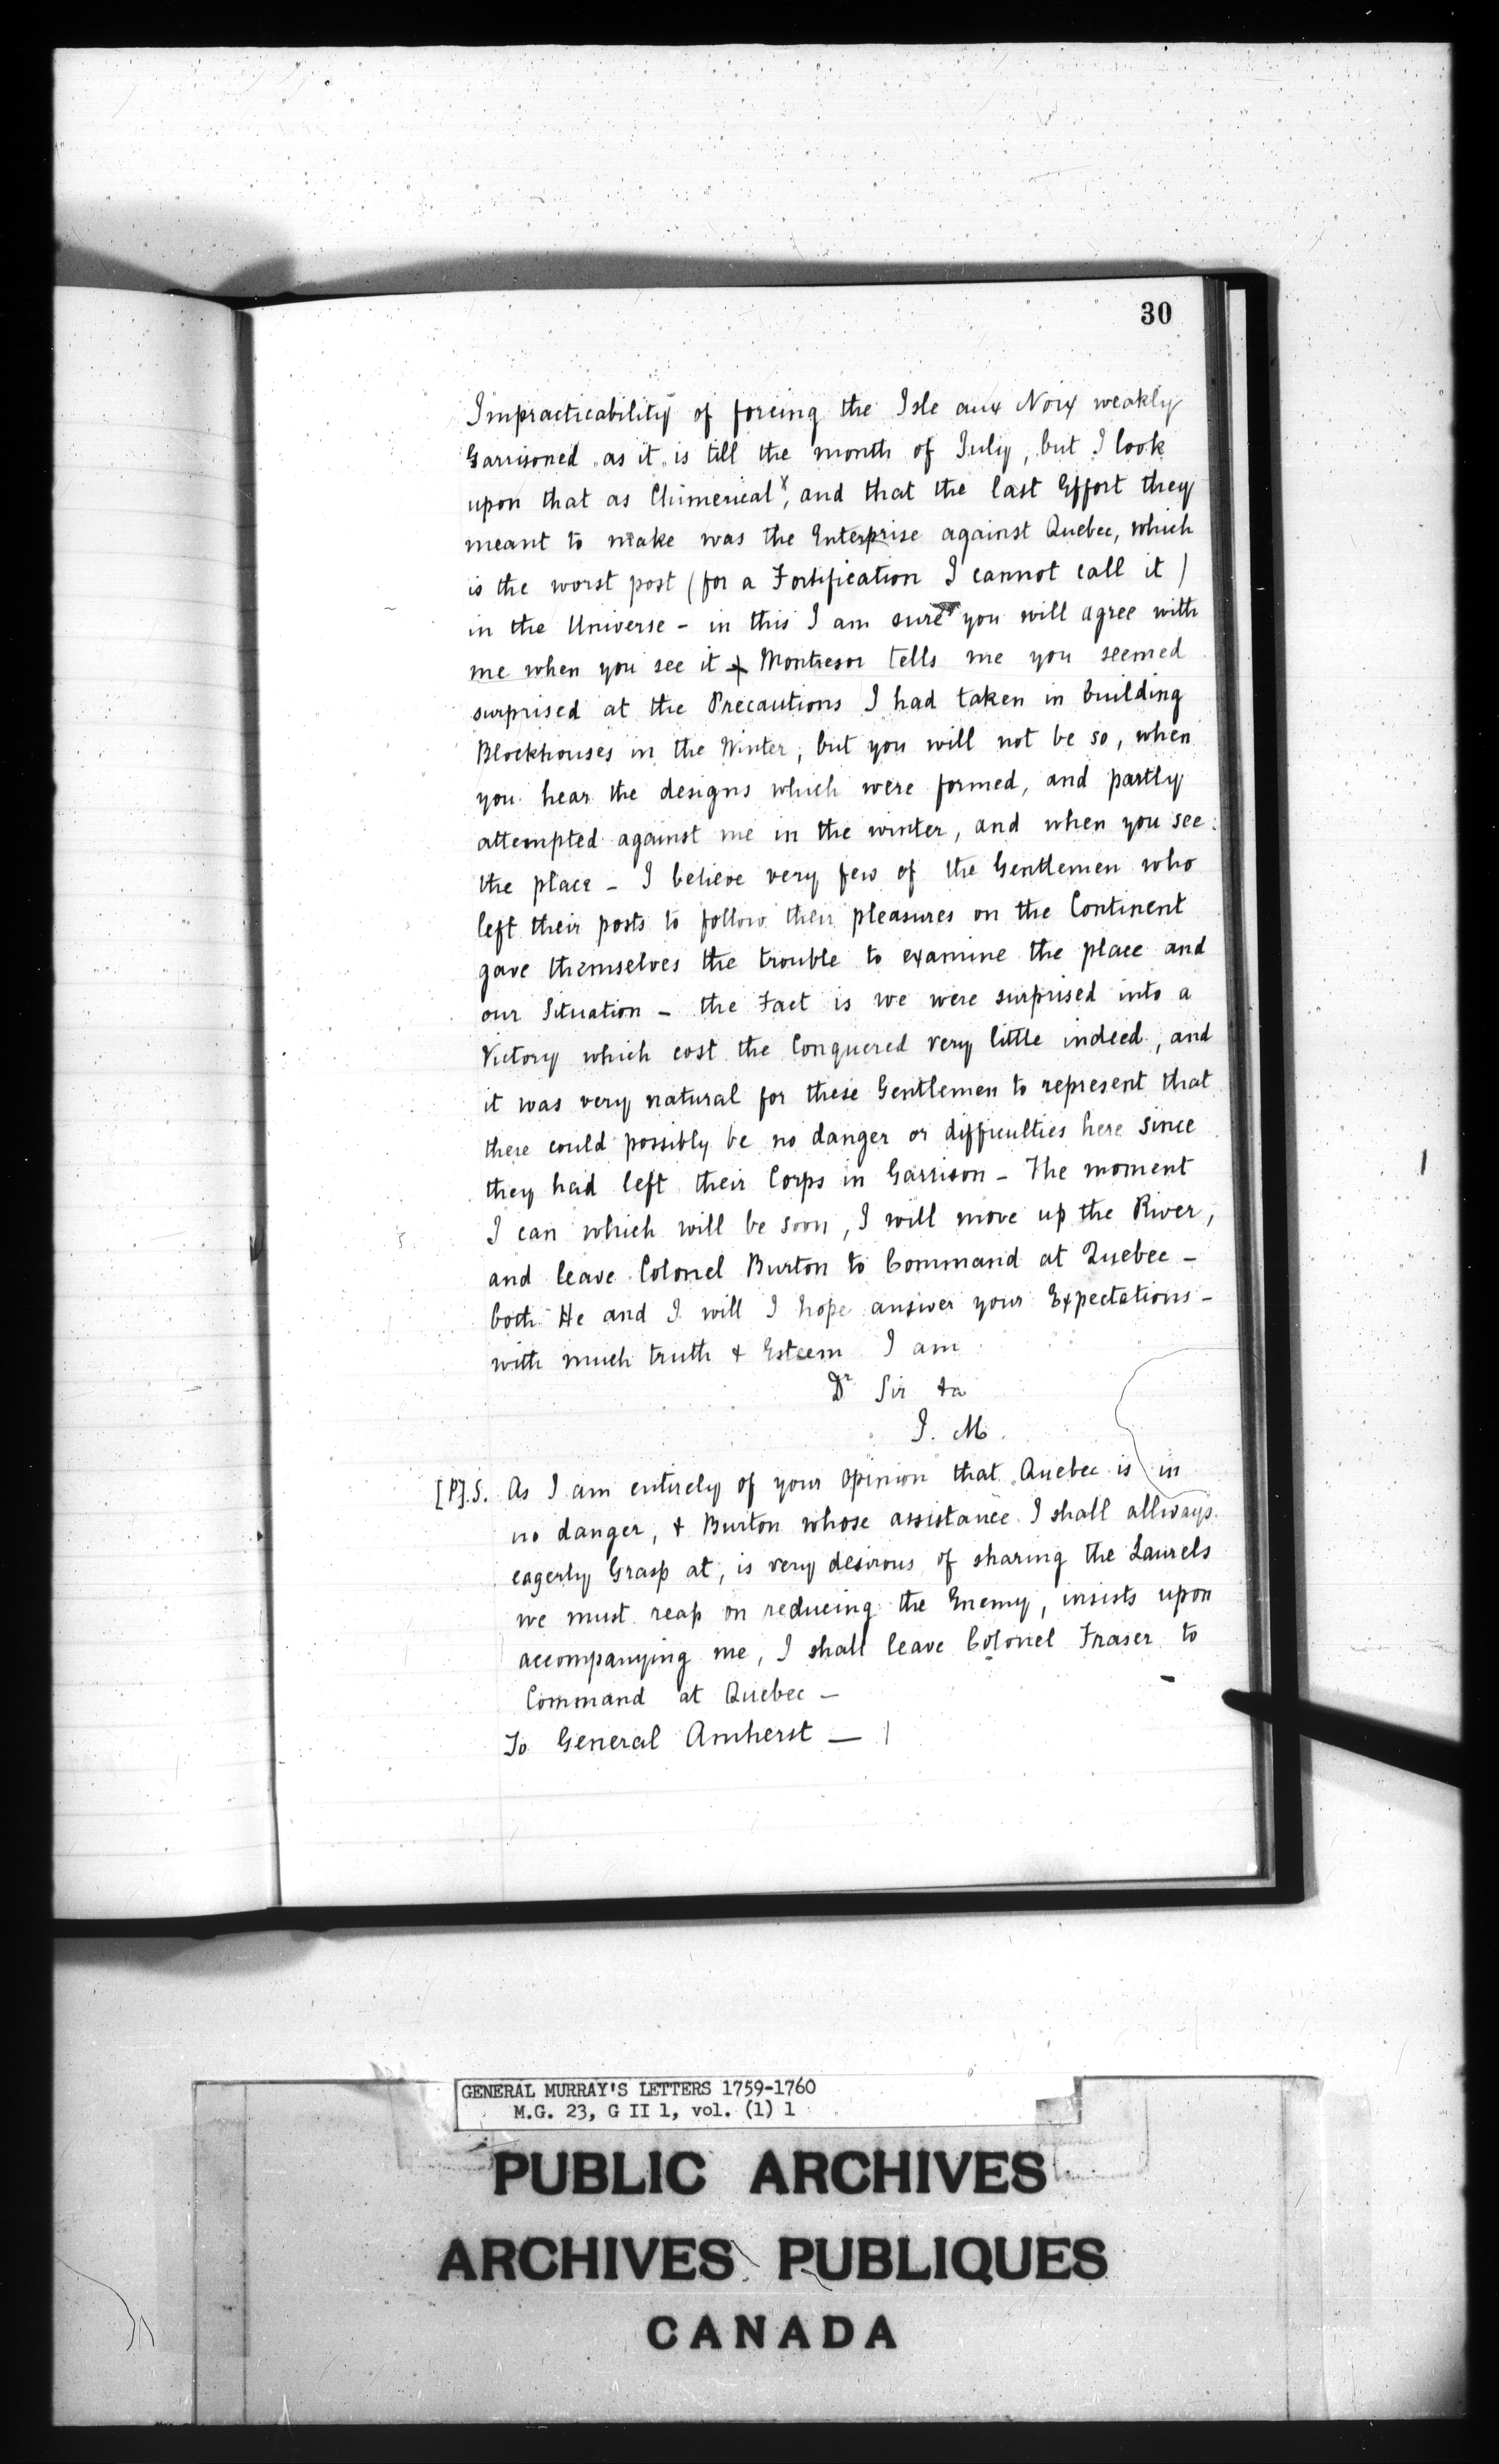 30
Impracticability of forcing the Isle aux Noix weakly
Garrisoned as it is till the month of July, but I look
upon that as Chimerical x, and that the last Effort they
meant to make was the Enterprise against Quebec, which
is the worst post (for a Fortification I cannot call it)
in the Universe - in this I am sure you will agree with
me when you see it + Montresor tells me you seemed
surprised at the Precautions I had taken in building
Blockhouses in the Winter, but you will not be so, when
you hear the designs which were formed, and partly
attempted against me in the winter, and when you see
the place - I believe very few of the Gentlemen who
left their posts to follow their pleasures on the Continent
gave themselves the trouble to examine the place and
our Situation - the Fact is we were surprised into a
Victory which cost the Conquered very little indeed, and
it was very natural for these Gentlemen to represent that
there could possibly be no danger or difficulties here since
they had left their Corps in Garrison - The moment
I can which will be soon, I will move up the River,
and leave Colonel Burton to Command at Quebec -
both He and I will I hope answer your Expectations -
with much truth & Esteem I am
Dr Sir &a
J. M.
[P].S. As I am entirely of your Opinion that Quebec is in
no danger, & Burton whose assistance I shall allways
eagerly Grasp at, is very desirous of sharing the Laurels
we must reap on reducing the Enemy, insists upon
accompanying me, I shall leave Colonel Fraser to
Command at Quebec -
To General Amherst -
GENERAL MURRAY'S LETTERS 1759-1760
M.G. 23, G II 1, vol. (1) 1
PUBLIC ARCHIVES
ARCHIVES PUBLIQUES
CANADA